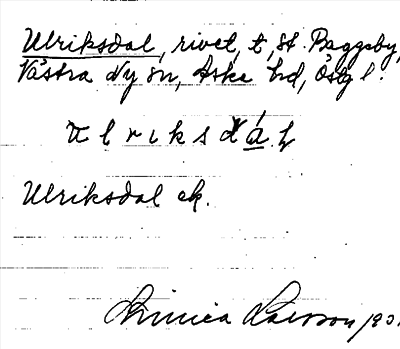 Ulriksdal, rivet, t. St. Baggeby,
Västra Ny sn, Aska hd, Östg l.
u l r i k s d á l
Ulriksdal ek.
Larsson 193